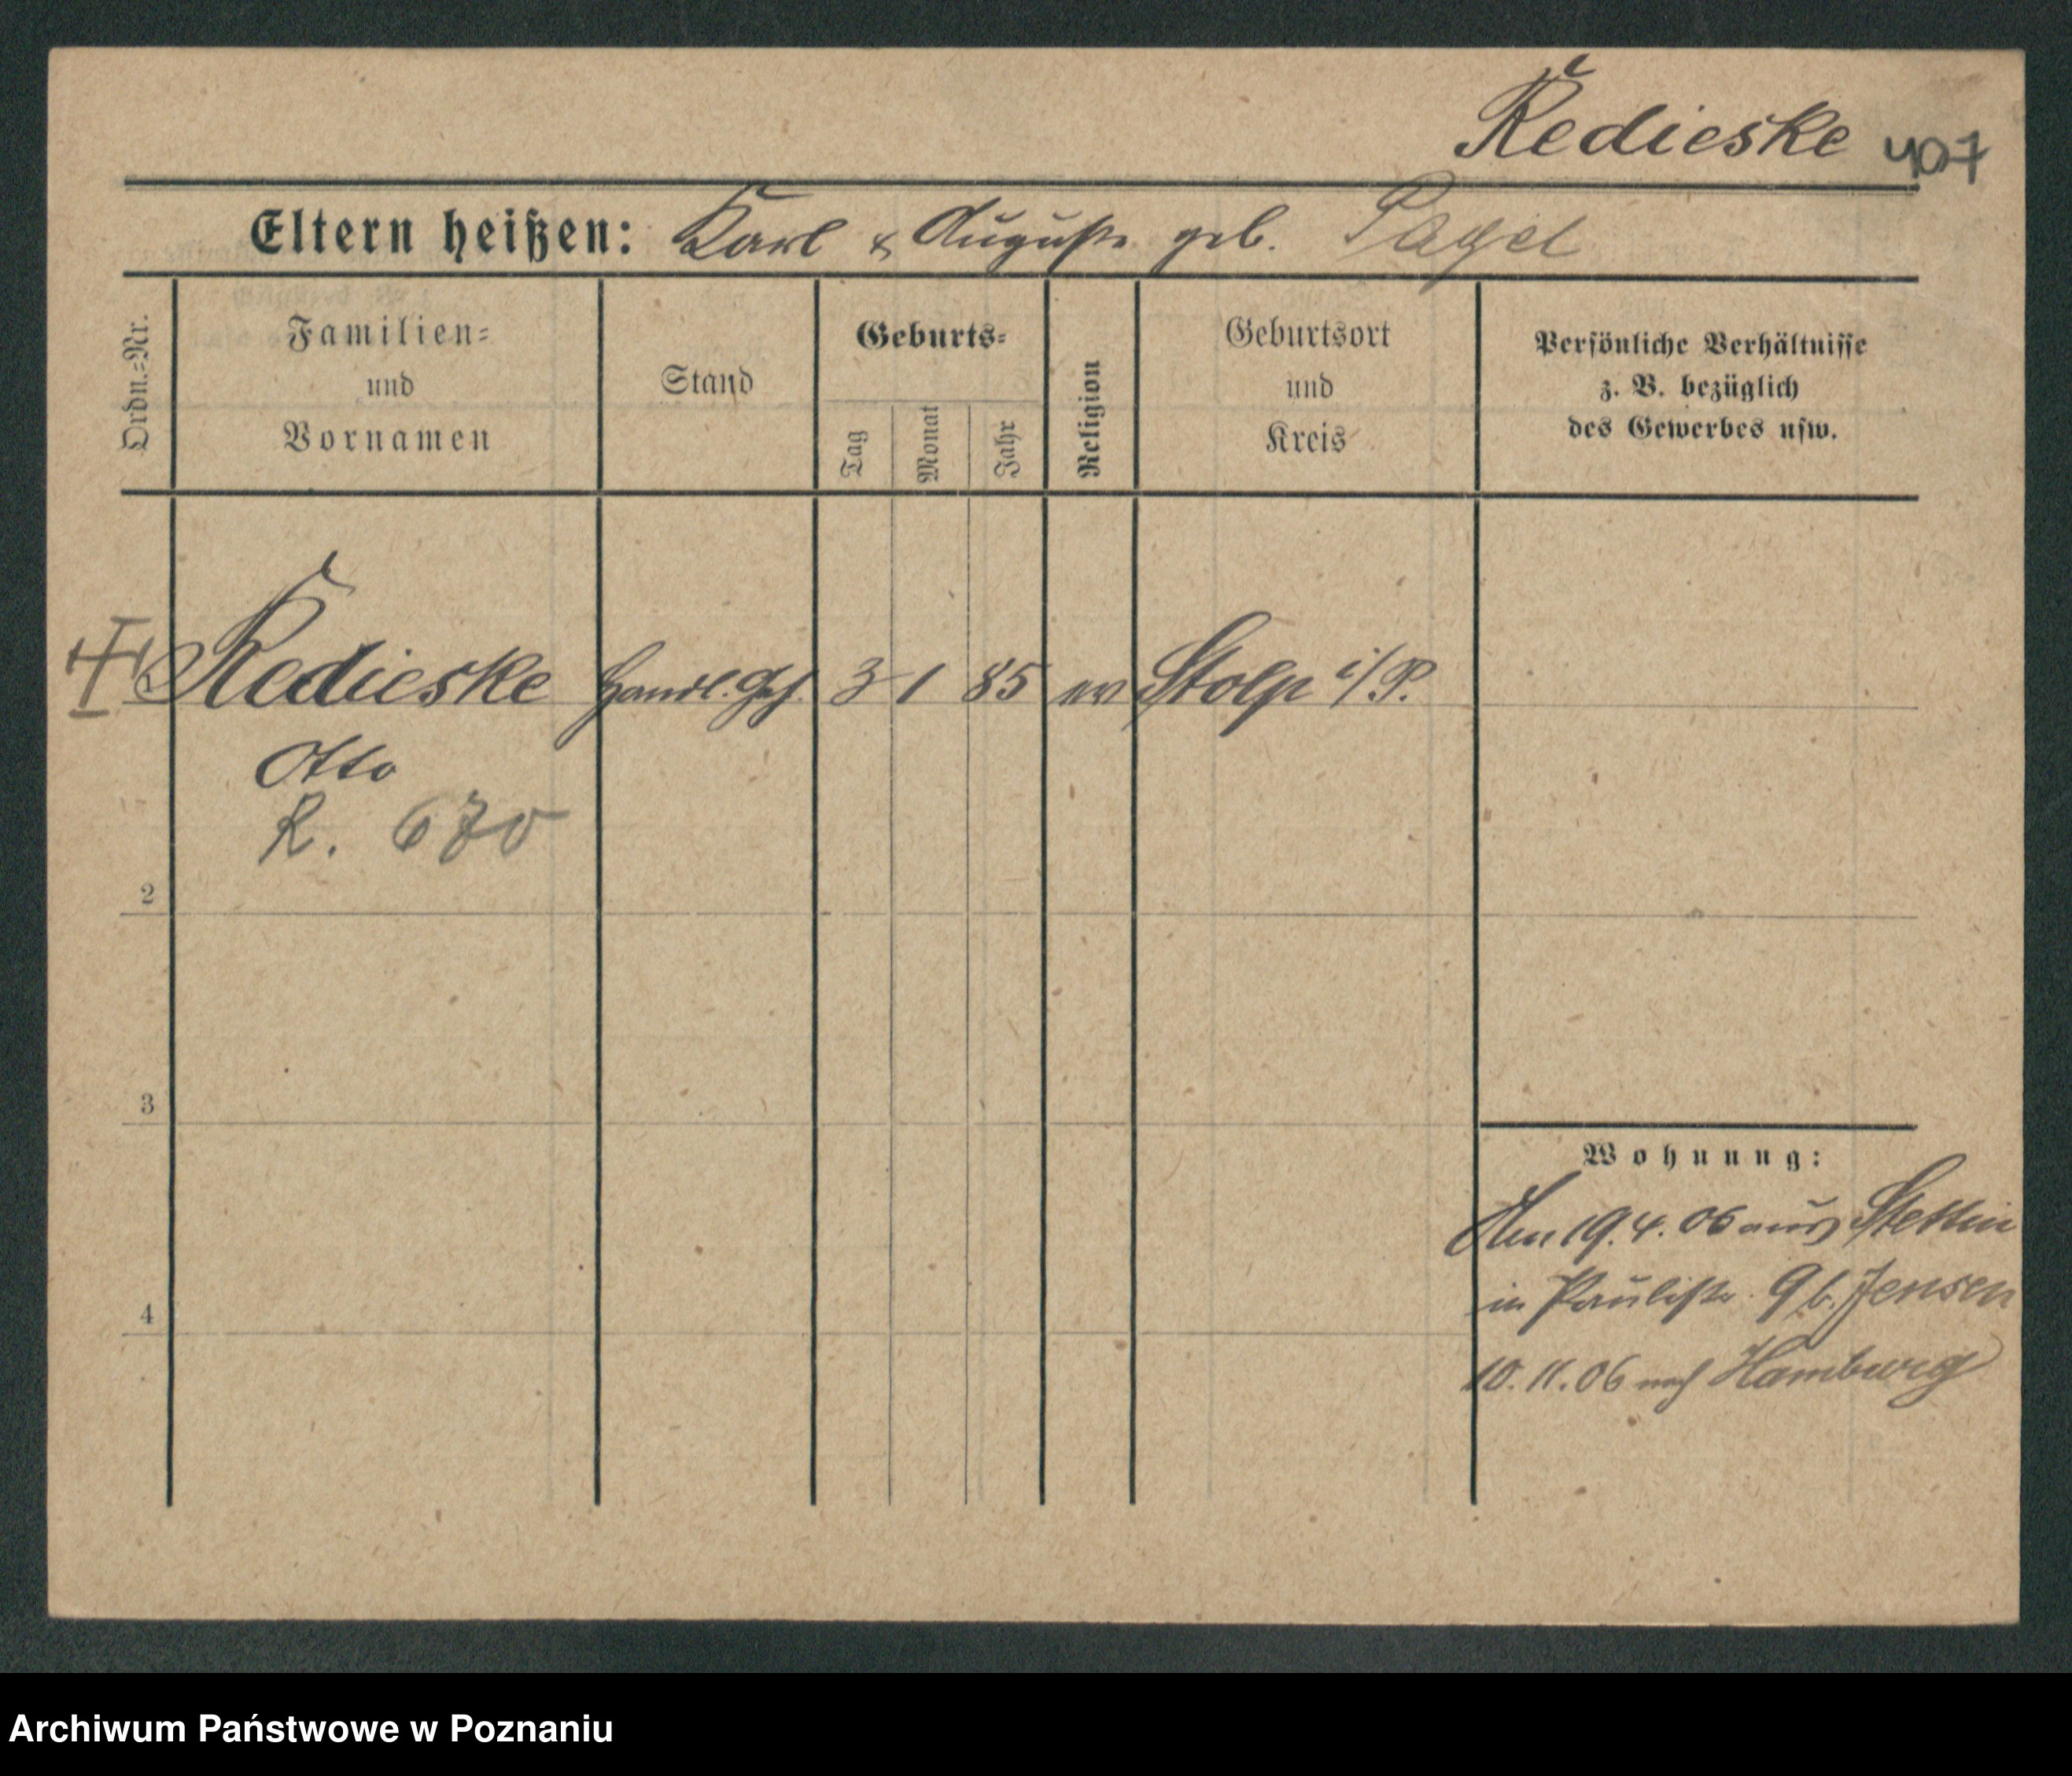 Redieske 407
Eltern heißen: Karl & Auguste geb. Pagel
Ordn.=Nr.
Familien=
und
Vornamen
Stand
Geburts=
Tag
Monat
Jahr
Religion
Geburtsort
und
Kreis
Persönliche Verhältnisse
z. B. bezüglich
des Gewerbes usw.
Redieske Handl. Geh. 3 1 85 ev Stolp i/P.
Otto
R. 670
2
3
4
Wohnung:
Am 19.4.06 aus Stettin
in Paulistr. 9 b. Jensen
10.11.06 nach Hamburg
Archiwum Państwowe w Poznaniu